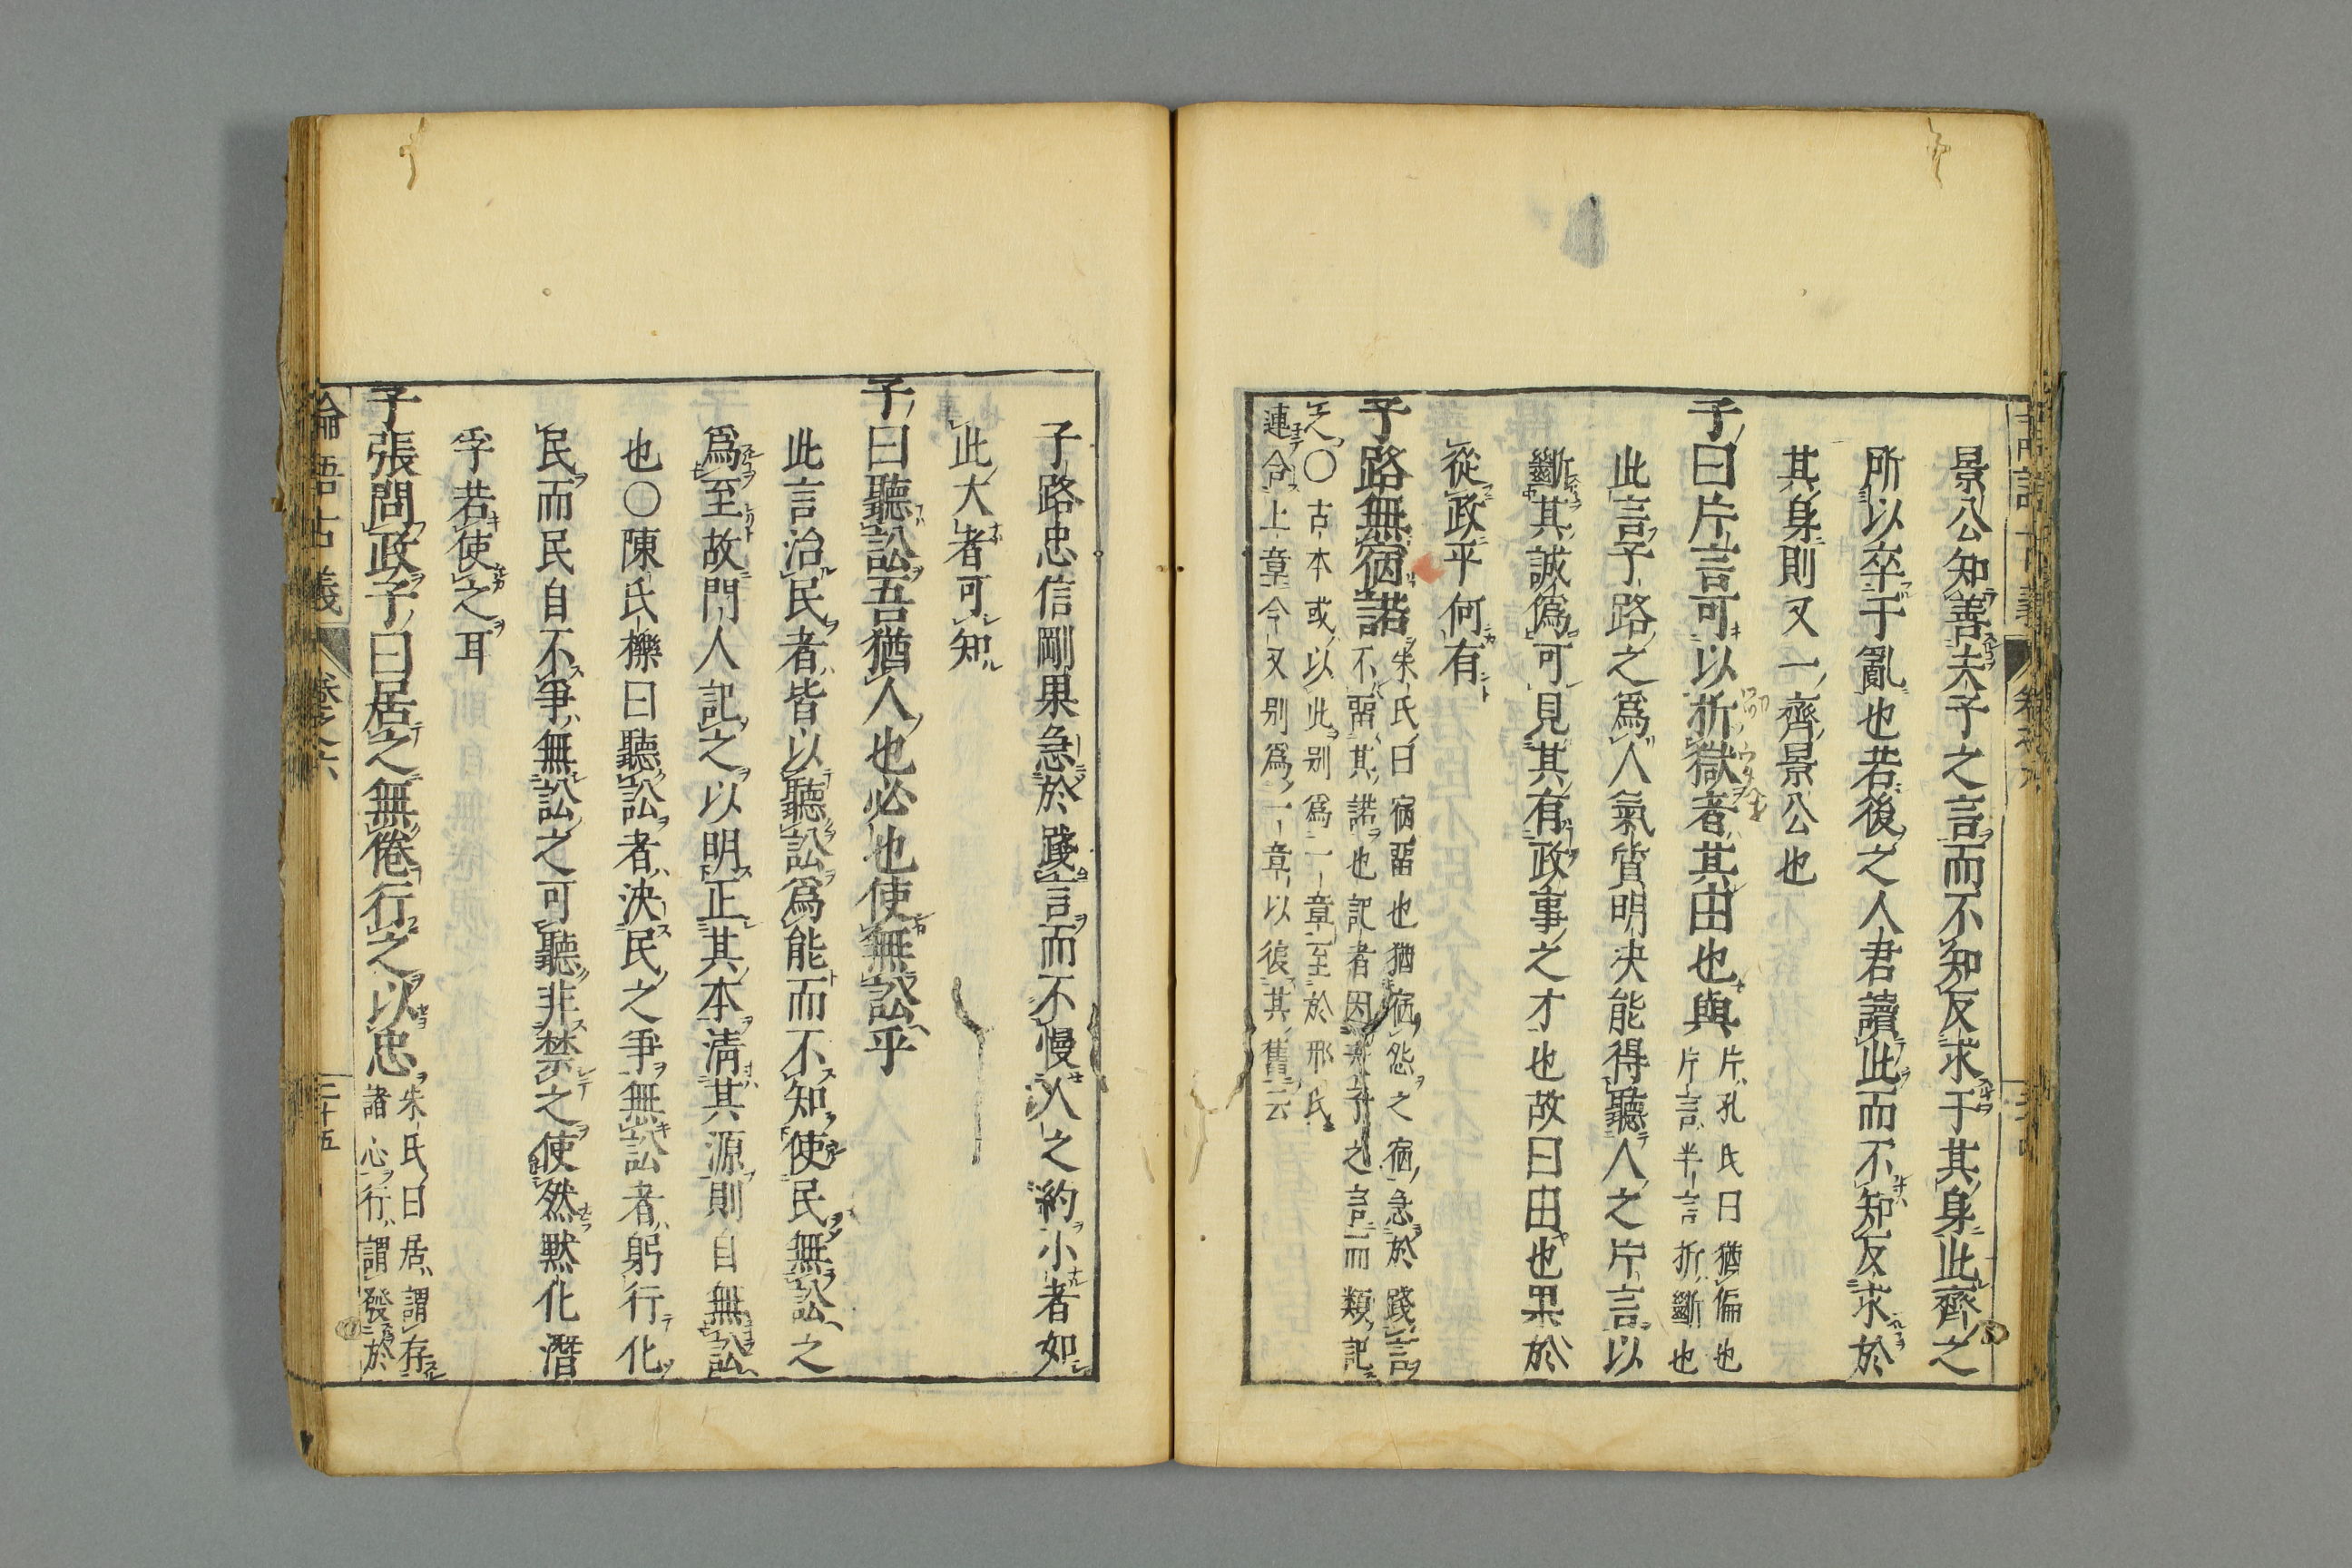 景公知善夫子之言而不知反求于其身此齊之
所以卒于亂也若後之人君讀此而不知反求於
其身則又一齊景公也
子曰片言可以折獄者其由也與片孔氏曰猶偏也
片言半言折斷也
此言子路之爲人氣質明決能得聽人之片言以
斷其誠僞可見其有政事之才也故曰由也果於
從政乎何有
子路無宿諾朱氏曰宿畱也猶宿怨之宿急於踐言
不畱其諾也記者因夫子之言而類記
之〇古本或以此别爲一章至於邢氏
連合上章今又别爲一章以復其舊云
子路忠信剛果急於踐言而不慢人之約小者如
此大者可知
子曰聽訟吾猶人也必也使無訟乎
此言治民者皆以聽訟爲能而不知使民無訟之
爲至故門人記之以明正其本淸其源則自無訟
也〇陳氏櫟曰聽訟者決民之爭無訟者躬行化
民而民自不爭無訟之可聽非禁之使然黙化潛
孚若使之耳
子張問政子曰居之無倦行之以忠朱氏曰居謂存
諸心行謂發於
論語古義 卷之六 二十五